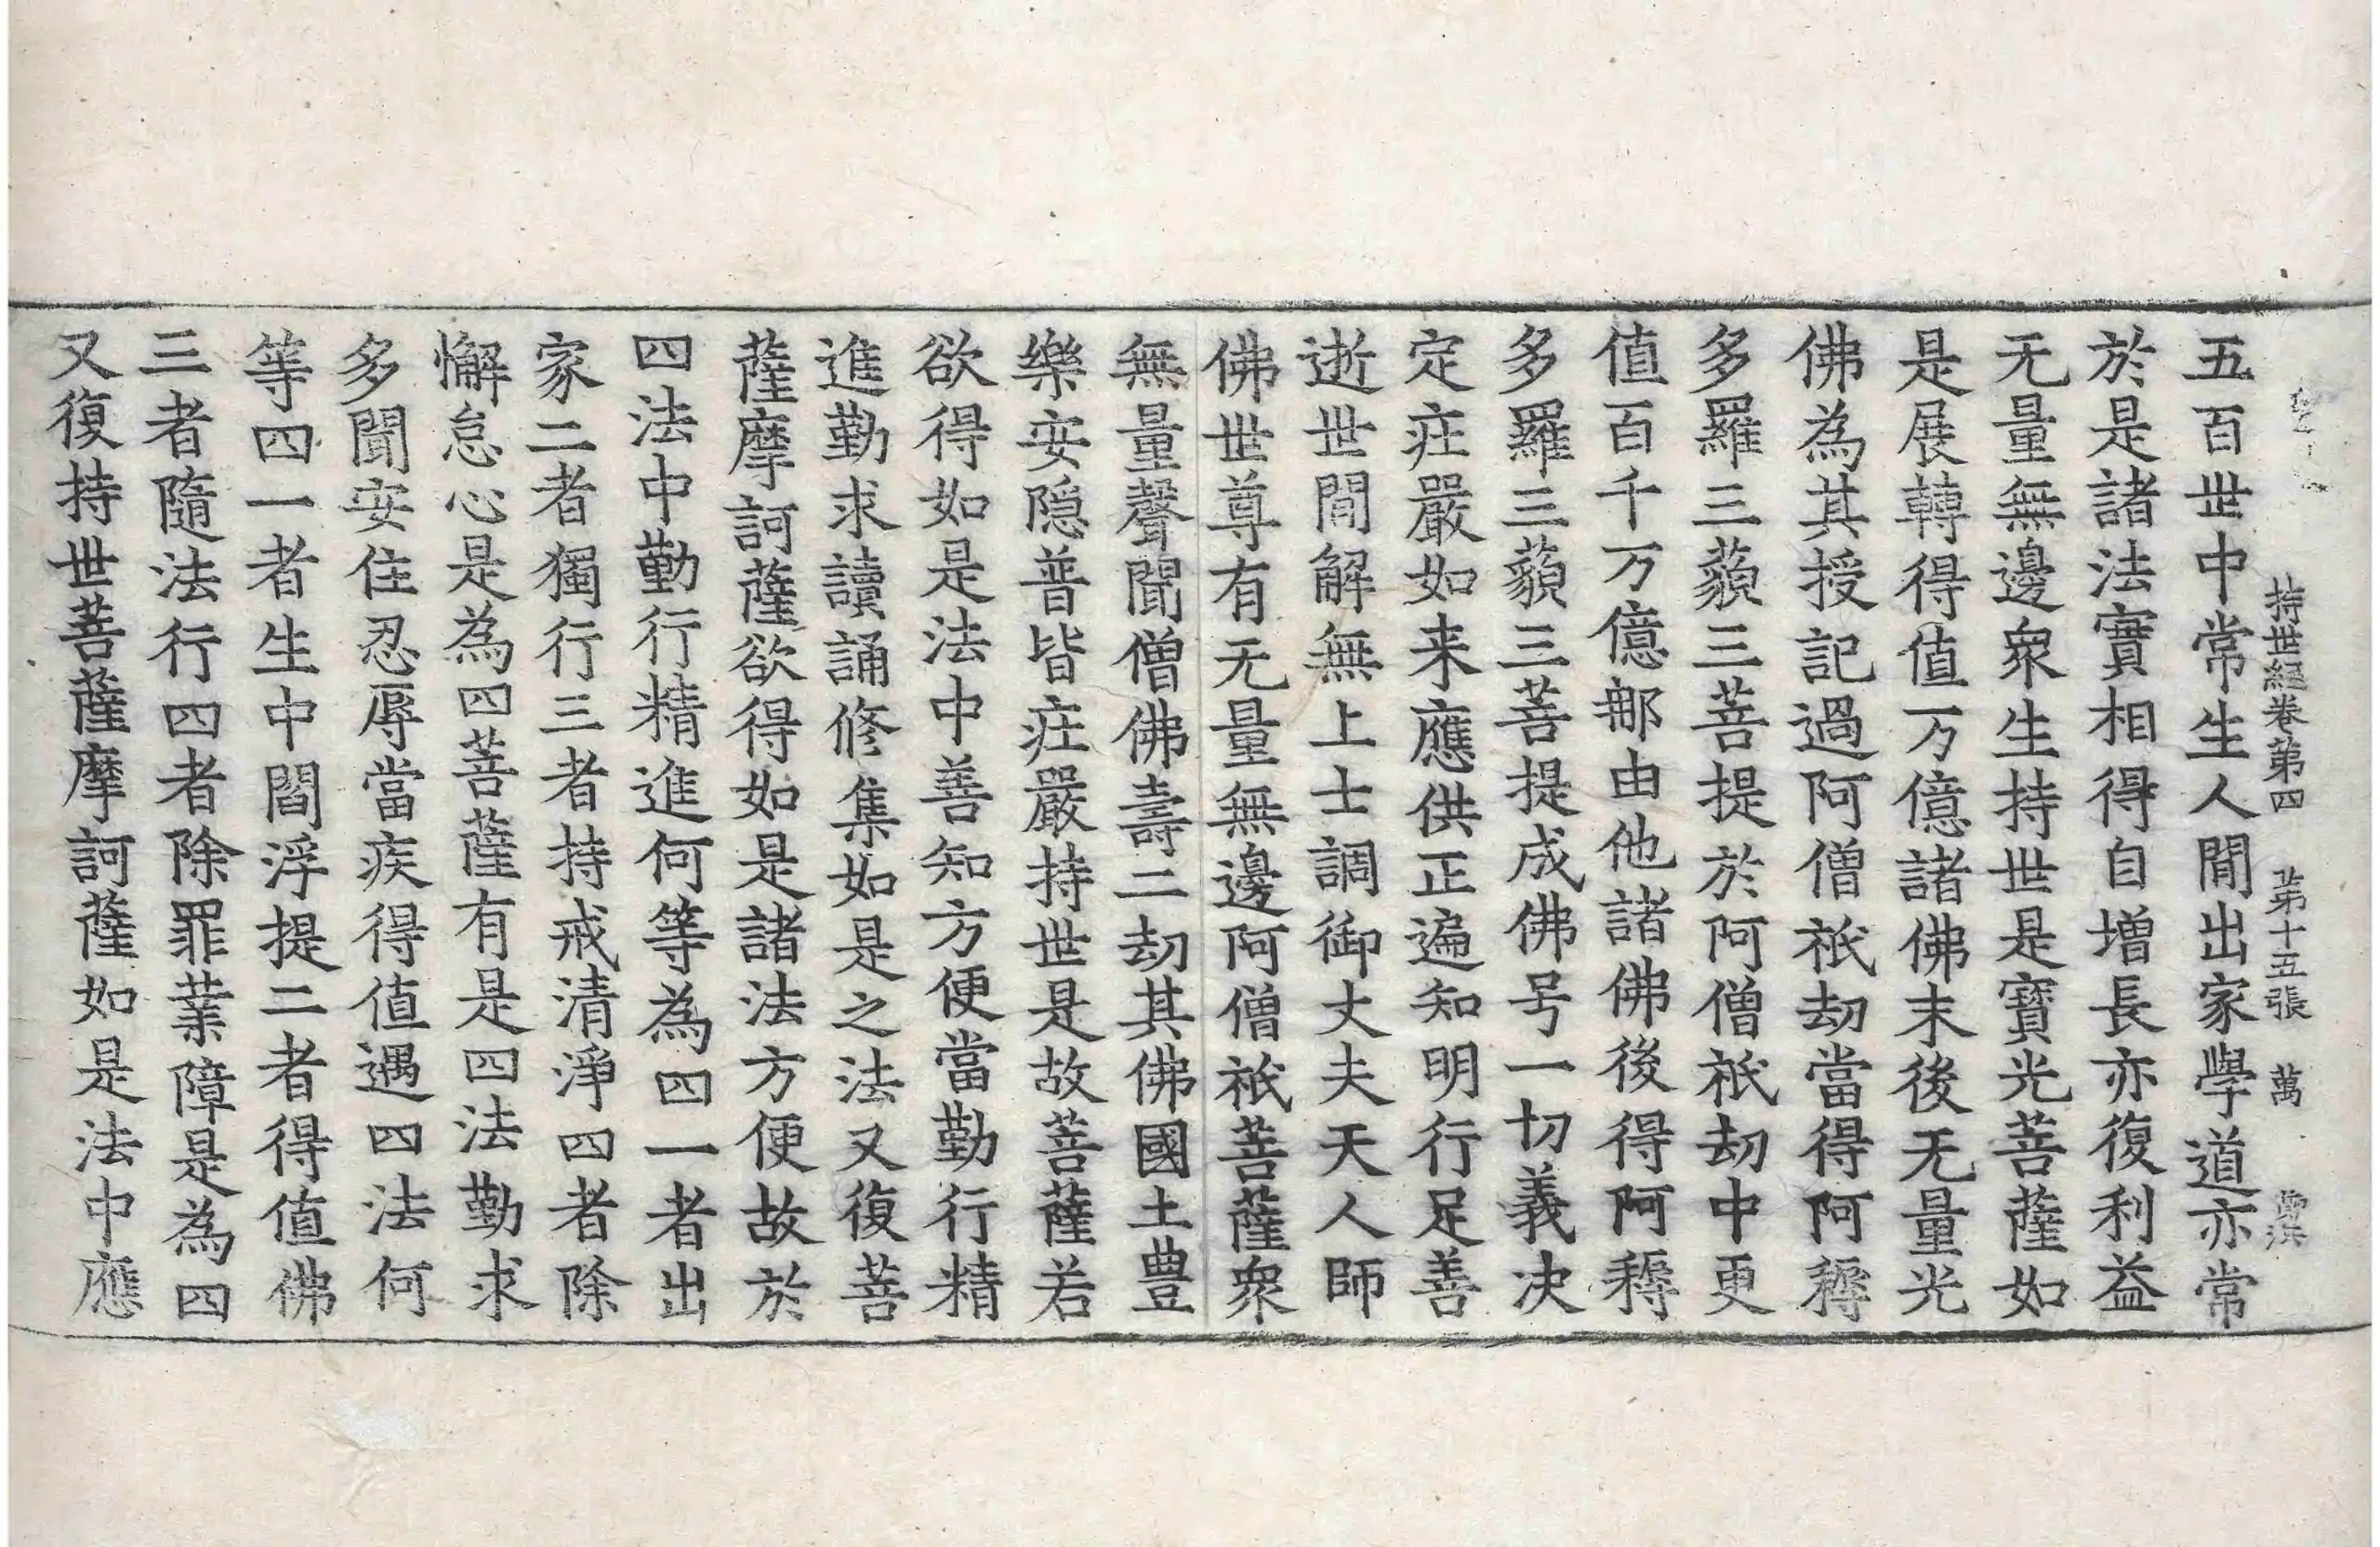 持世經卷第四　第十五張　萬
五百世中常生人間出家學道亦常
於是諸法實相得自增長亦復利益
无量無邊衆生持世是寶光菩薩如
是展轉得值万億諸佛末後无量光
佛為其授記過阿僧祇劫當得阿耨
多羅三藐三菩提於阿僧祇劫中更
值百千万億那由他諸佛後得阿耨
多羅三藐三菩提成佛号一切義决
定莊嚴如来應供正遍知明行足善
逝世間解無上士調御丈夫天人師
佛世尊有无量無邊阿僧祇菩薩衆
無量聲聞僧佛壽二劫其佛國土豊
樂安隐普皆莊嚴持世是故菩薩若
欲得如是法中善知方便當勤行精
進勤求讀誦修集如是之法又復菩
薩摩訶薩欲得如是諸法方便故於
四法中勤行精進何等為四一者出
家二者獨行三者持戒清淨四者除
懈怠心是為四菩薩有是四法勤求
多聞安住忍辱當疾得值遇四法何
等四一者生中閻浮提二者得值佛
三者隨法行四者除罪業障是為四
又復持世菩薩摩訶薩如是法中應